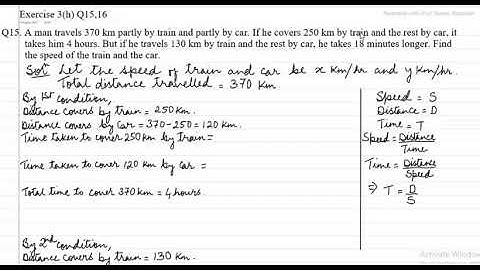 Exercise 3(h) Q15,16
Q15. A man travels 370 km partly by train and partly by car. If he covers 250 km by train and the rest by car, it
takes him 4 hours. But if he travels 130 km by train and the rest by car, he takes 18 minutes longer. Find
the speed of the train and the car.
Solt Let the speed of train and car be x Km/hr and y Km/hr.
Total distance travelled = 370 Km
By 1st condition,
Distance covers by train = 250 Km.
Distance covers by Car = 370-250 = 120 Km.
Time taken to cover 250 km by train =
Time taken to cover 120 km by car =
Total time to cover 370 Km = 4 hours.
By 2nd condition,
Distance covers by train = 130 Km.
Speed = S
Distance = D
Time = T
Speed = Distance
Time
Time = Distance
Speed
⇒ T = D
S
Activate Window